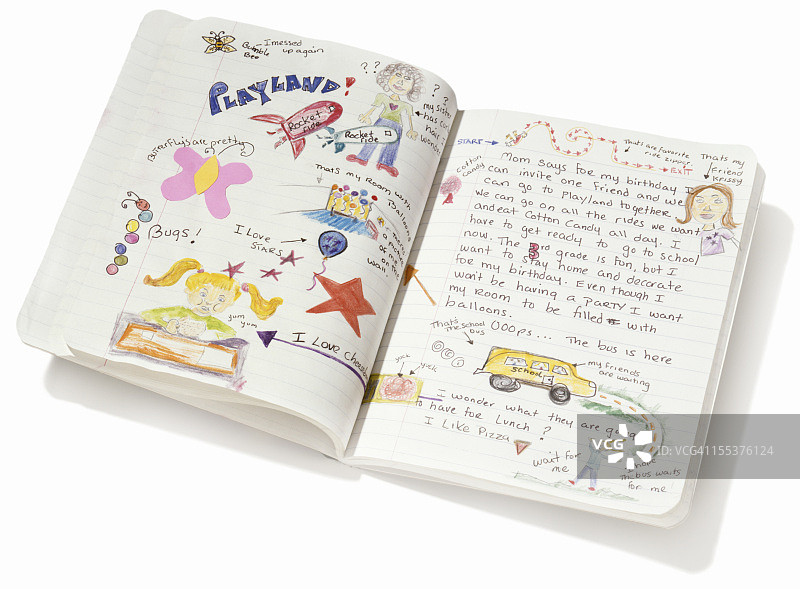 I messed
up again
Bumble
Bee
PLAYLAND!
? ?
?
?
my sister
has cur
hair I
wonder
Rocket
ride
Rocket
ride
Butterflys are pretty
Thats my Room with
Balloons
a picture
of me
on the
wall.
Bugs!
I Love
STARS
yum
yum
I Love Cho
START
Thats are favorite
ride zipper.
EXIT
Thats my
friend
Krissy
Cotton
Candy
Mom says for my birthday I
can invite one friend and we
can go to Playland together.
We can go on all the rides we want
and eat Cotton Candy all day. I
have to get ready to go to school
now. The 3rd grade is fun, but I
want to stay home and decorate
for my birthday. Even though I
won't be having a PARTY I want
my Room to be filled with
balloons.
OOOps... The bus is here
That's
the school
bus
SCHOOL
my friends
are waiting
yek
yek
I wonder what they are go
to have for Lunch?
I Like Pizza
wait for
me
the bus waits
for me
VCG
ID: VCG41155376124